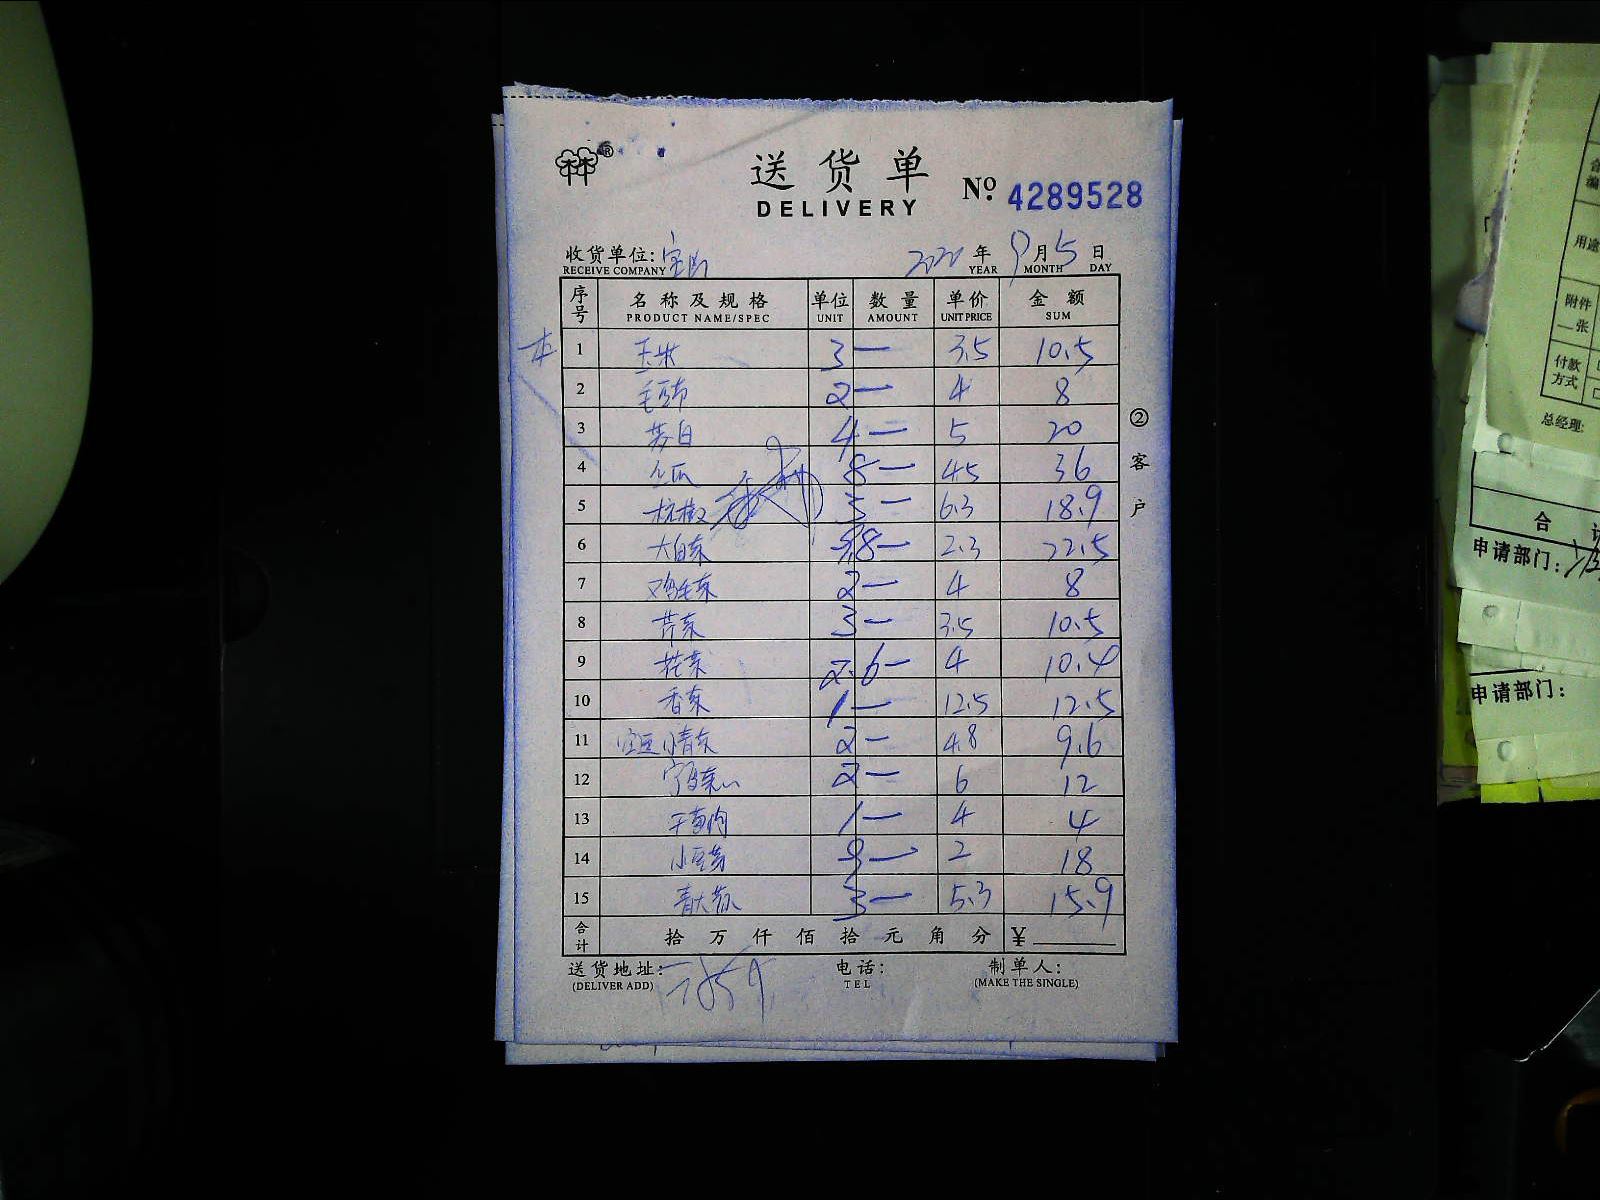 林®
送货单
DELIVERY
No. 4289528
收货单位: 2020年9月5日
RECEIVE COMPANY YEAR MONTH DAY
序号 名称及规格 单位 数量 单价 金额
PRODUCT NAME/SPEC UNIT AMOUNT UNIT PRICE SUM
1 玉米 3— 3.5 10.5
2 毛豆节 2— 4 8
3 茭白 4— 5 20
4 瓜 8— 4.5 36
5 杭椒 3— 6.3 18.9
6 大白菜 9.8— 2.3 22.5
7 鸡毛菜 2— 4 8
8 芹菜 3— 3.5 10.5
9 花菜 2.6— 4 10.4
10 香菜 1— 12.5 12.5
11 小青菜 2— 4.8 9.6
12 2— 6 12
13 1— 4 4
14 小豆芽 9— 2 18
15 青大蒜 3— 5.3 15.9
合计 拾万仟佰拾元角分 ¥
送货地址:
(DELIVER ADD)
电话:
TEL
制单人:
(MAKE THE SINGLE)
②客户
用途
附件
—张
付款
方式
总经理:
合
申请部门:
申请部门: